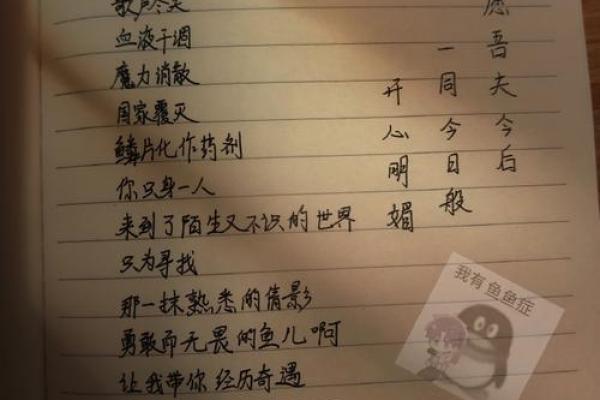 血液干涸
魔力消散
国家覆灭
鳞片化作药剂
你只身一人
来到了陌生又不识的世界
只为寻找
那一抹熟悉的倩影
勇敢而无畏的鱼儿啊
让我带你经历奇遇
愿吾夫今后
一同今日般
开心明媚
我有鱼鱼症